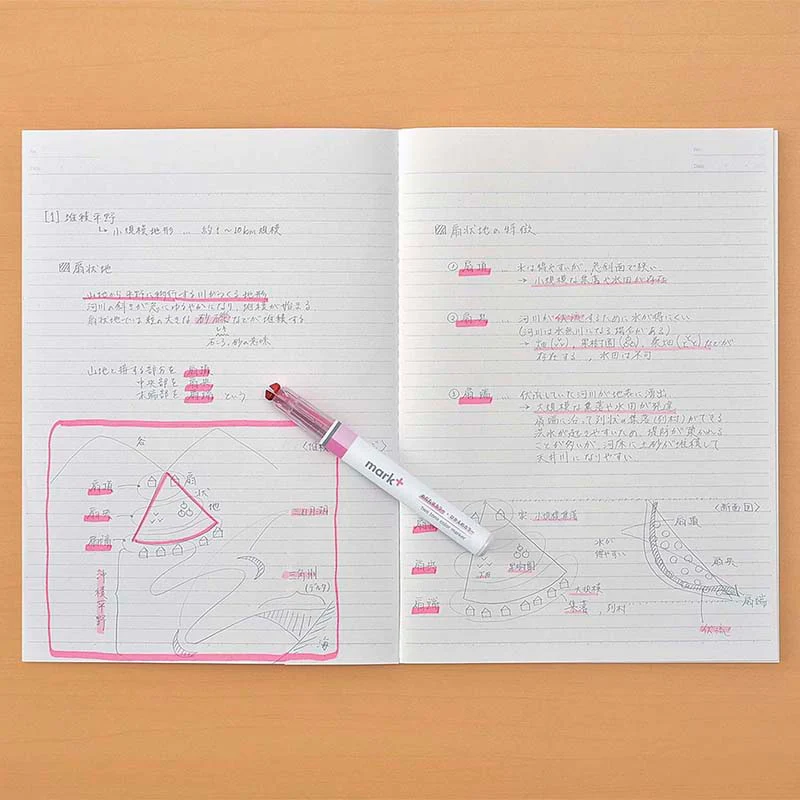 [1] 堆積平野
↳ 小規模地形 … 約1〜10km規模
扇状地
山地から平野に移行する川がつくる地形
河川の斜きが急にゆるやかになり、堆積が始まる
扇状地では粒の大きな砂礫などが堆積する
れき
石ころ、砂の意味
山地と接する部分を 扇頂
中央部を 扇央
末端部を 扇端 という
〈堆積
谷
扇頂
扇状地
扇央
扇端
三日月湖
三角州
(デルタ)
堆積平野
海
mark+
Two tone color marker
No.
Date
扇状地の特徴
① 扇頂 … 水は得やすいが、急斜面で狭い
→ 小規模な集落や水田が存在
② 扇央 … 河川が伏流するために水が得にくい
(河川は水無川になる場合がある)
→ 畑、果樹園、桑畑などが
存在する、水田は不可
③ 扇端 … 伏流していた河川が地表に湧出
→ 大規模な集落や水田が発達
扇端に沿って列状の集落(列村)ができる
洪水が起こりやすいため、堤防が築かれる
ことが多いが、河床に土砂が堆積して
天井川になりやすい。
扇頂
家 小規模集落
水が
得やすい
扇央
畑
果樹園
大規模
扇端
集落、列村
〈断面図〉
扇頂
扇央
扇端
伏流